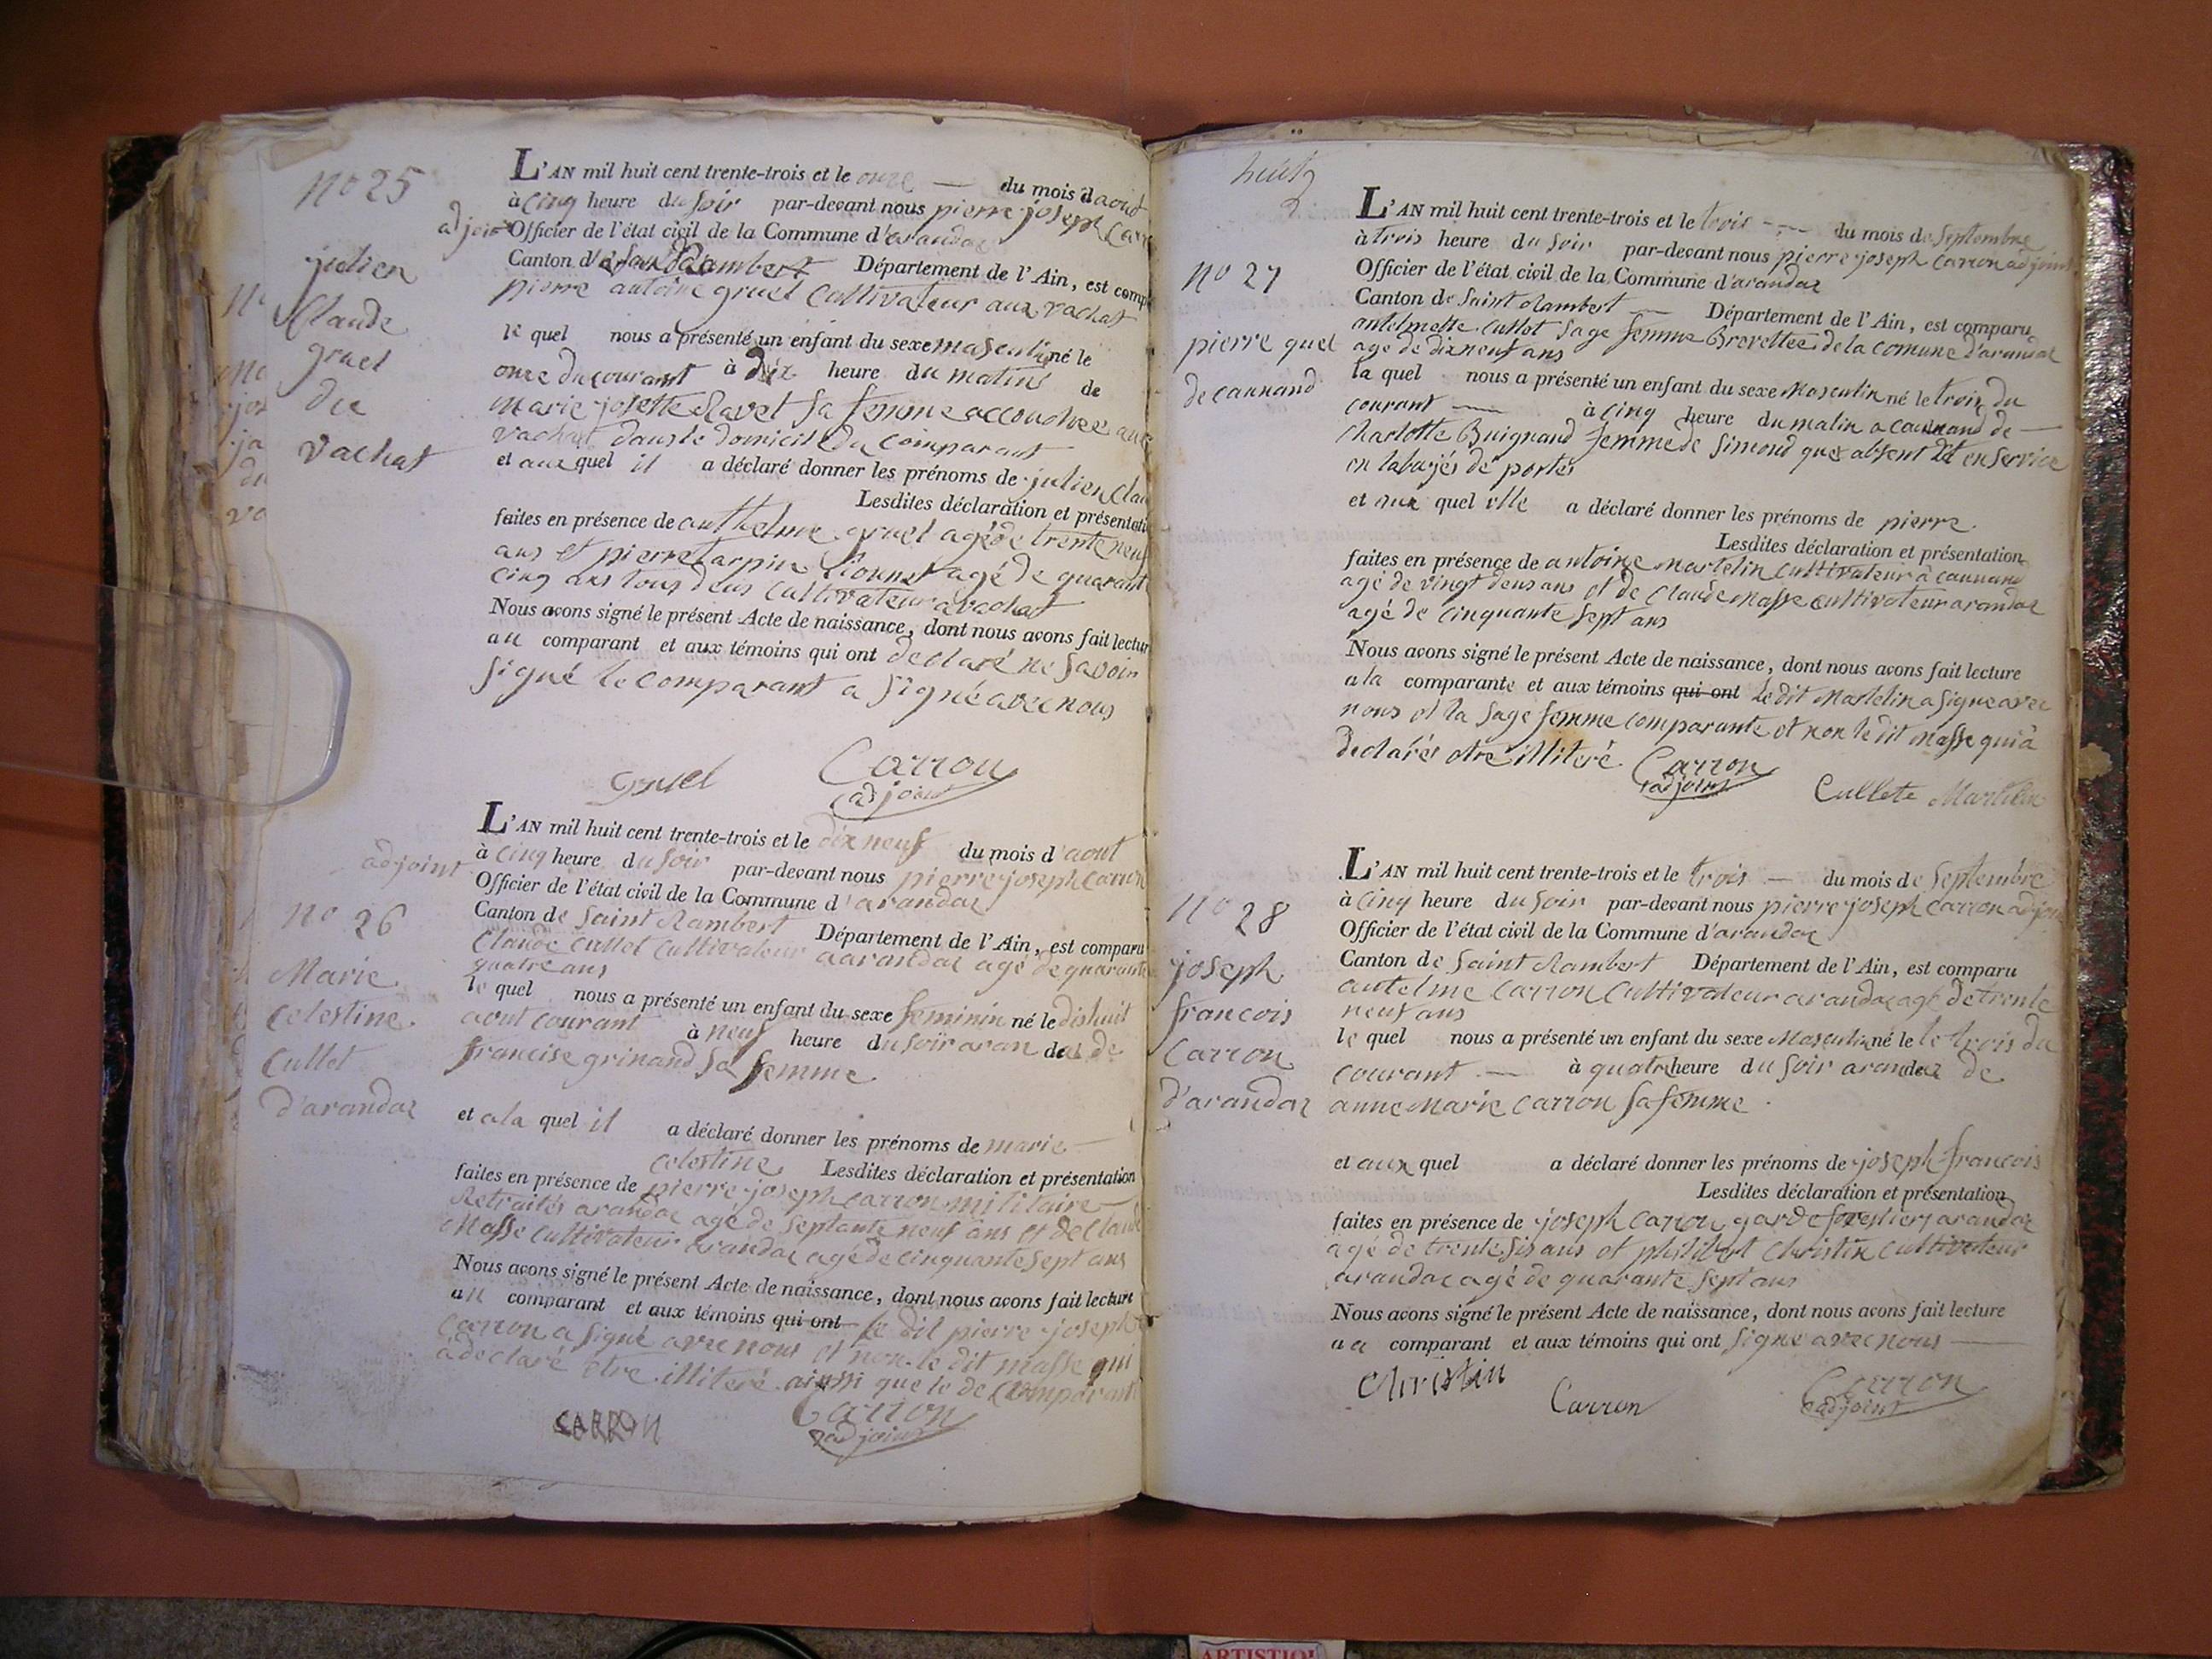 nº 25
julien
Claude
gruel
du
vachat
L'AN mil huit cent trente-trois et le onze — du mois d'aout
à Cinq heure du soir par-devant nous pierre joseph Carr
adjoint Officier de l'état civil de la Commune d'arandaz
Canton de Saint Rambert Département de l'Ain, est comp
pierre antoine gruel Cultivateur aux vachat
le quel nous a présenté un enfant du sexe masculin né le
onze du courant à Dix heure du matins de
marie josette Ravet sa femme accouchee aux
vachat dans le domicile du Comparant
et aux quel il a déclaré donner les prénoms de julien Clau
Lesdites déclaration et présentati
faites en présence de anthelme gruel agé de trente neuf
ans et pierre tarpin lionnet agé de quarant
Cinq ans tous deus Cultivateur a vachat
Nous avons signé le présent Acte de naissance, dont nous avons fait lectur
au comparant et aux témoins qui ont declaré ne savoir
signé le comparant a signé avec nous
Gruel
Carron
adjoint
adjoint
nº 26
Marie
Celestine
Cullet
d'arandaz
L'AN mil huit cent trente-trois et le dix neuf du mois d'aout
à Cinq heure du soir par-devant nous pierre joseph Carron
Officier de l'état civil de la Commune d'arandaz
Canton de Saint Rambert Département de l'Ain, est comparu
Claude Cullet Cultivateur a arandaz agé de quarante
quatre ans
le quel nous a présenté un enfant du sexe feminin né le dishuit
aout courant à neuf heure du soir arandas de
francise grinand sa femme
et a la quel il a déclaré donner les prénoms de marie —
celestine Lesdites déclaration et présentation
faites en présence de pierre joseph Carron militaire —
Retraités arandaz agé de septante neuf ans et de Claude
Masse Cultivateur arandaz agé de cinquante sept ans
Nous avons signé le présent Acte de naissance, dont nous avons fait lecture
au comparant et aux témoins qui ont le dit pierre joseph
Carron a signé avec nous et non le dit masse qui
a declaré etre illiteré ainssi que le de Comparant
CARRON
Carron
adjoint
huit
nº 27
pierre quet
de caunand
L'AN mil huit cent trente-trois et le trois — du mois de Septembre
à trois heure du soir par-devant nous pierre joseph Carron adjoint
Officier de l'état civil de la Commune d'arandaz
Canton de Saint Rambert — Département de l'Ain, est comparu
antelmette Cullet sage femme Brevettée de la comune d'arandaz
age de dix neuf ans
la quel nous a présenté un enfant du sexe Masculin né le trois du
courant — à cinq heure du matin a caunand de —
Charlotte Buignand femme de simond quet absent et en service
et aux quel elle a déclaré donner les prénoms de pierre.
Lesdites déclaration et présentation
faites en présence de antoine Martelin Cultivateur à caunand
agé de vingt deus ans et de Claude Masse cultivateur arandaz
agé de cinquante sept ans
Nous avons signé le présent Acte de naissance, dont nous avons fait lecture
a la comparante et aux témoins qui ont le dit Martelin a signe avec
nous et la sage femme comparante et non le dit Masse qui à
declarés etre illiteré.
Carron
adjoint
Cullete Martelin
nº 28
joseph
francois
Carron
d'arandaz
L'AN mil huit cent trente-trois et le trois — du mois de Septembre
à Cinq heure du soir par-devant nous pierre joseph Carron adjoin
Officier de l'état civil de la Commune d'arandaz
Canton de Saint Rambert Département de l'Ain, est comparu
antelme Carron Cultivateur arandaz agé de trente
neuf ans
le quel nous a présenté un enfant du sexe Masculin né le le trois du
courant — à quatre heure du soir arandaz de
anne Marie Carron sa femme.
et aux quel a déclaré donner les prénoms de joseph francois
Lesdites déclaration et présentation
faites en présence de joseph Carron garde forestier arandaz
agé de trente sis ans et philibert Christin Cultivateur
arandaz agé de quarante sept ans
Nous avons signé le présent Acte de naissance, dont nous avons fait lecture
au comparant et aux témoins qui ont signe avec nous —
Christin
Carron
Carron
adjoint
ARTISTIQU